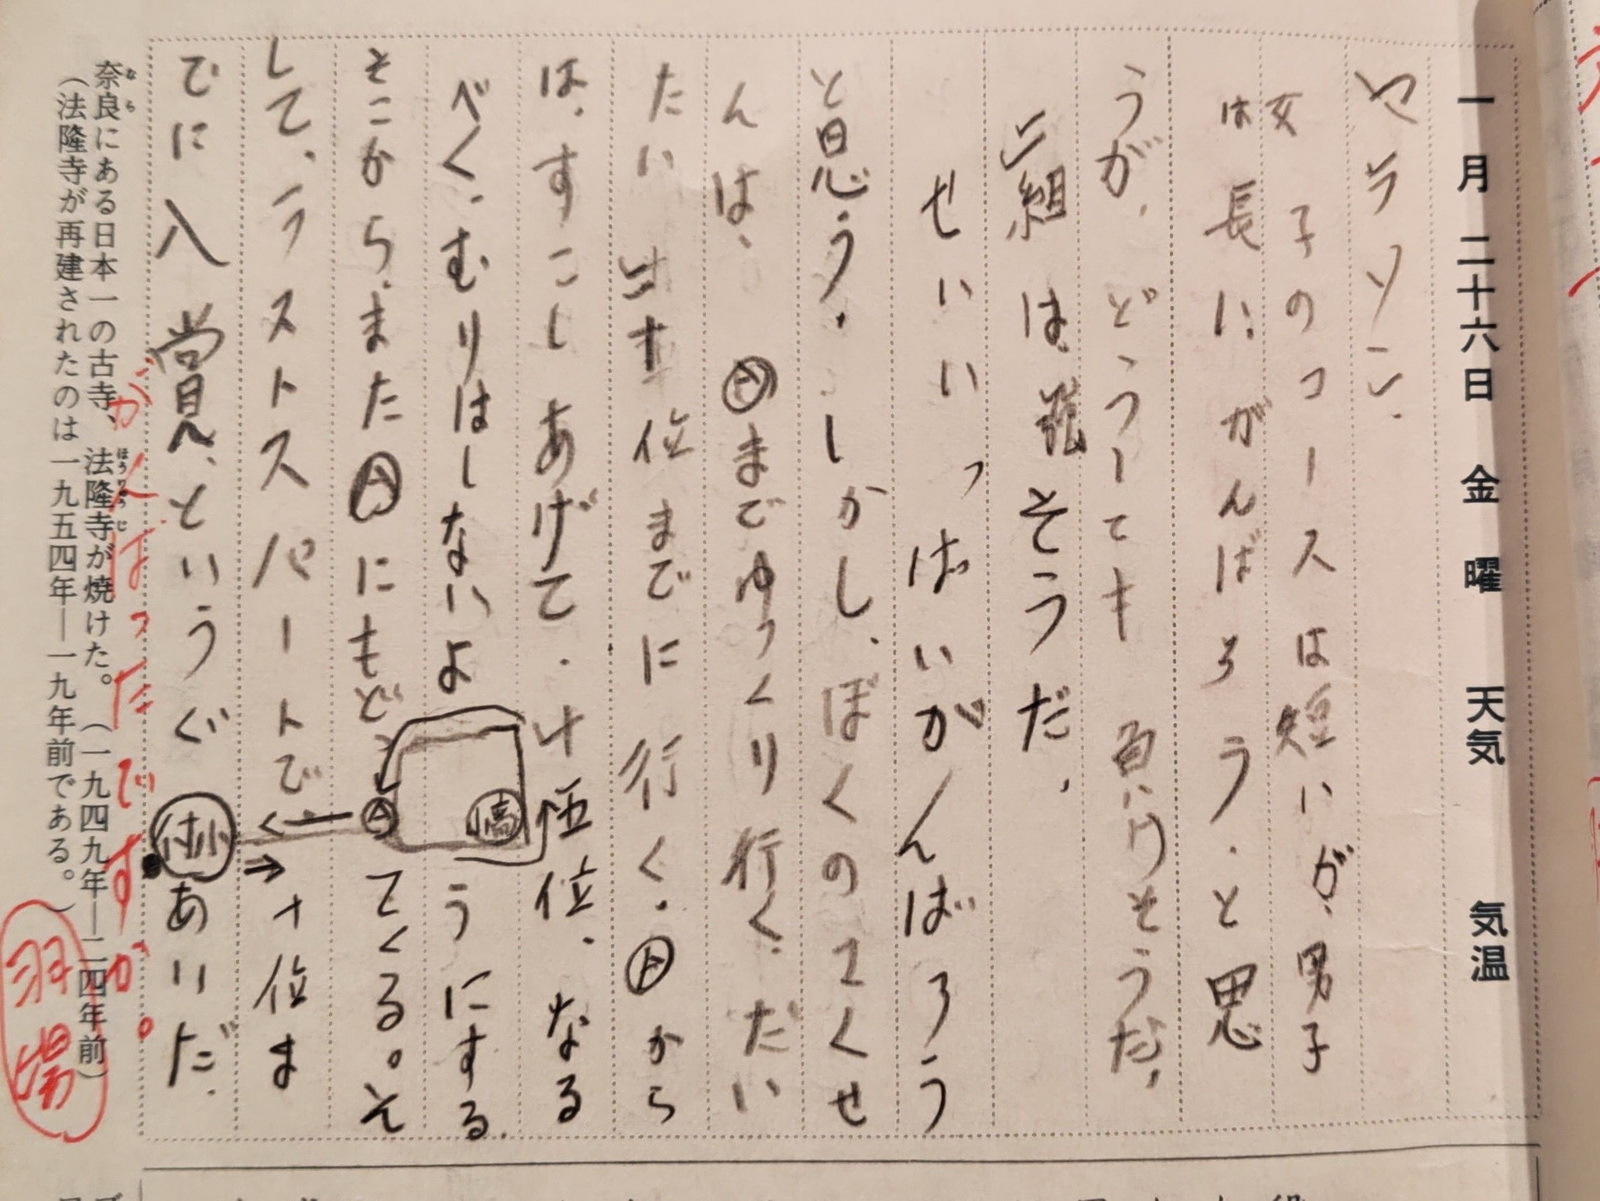 一月二十六日 金曜 天気 気温
マラソン.
女子のコースは短いが、男子
は長い、がんばろう.と思
うが、どうしても負けそうだ.
二組は、強そうだ.
せいいっぱいがんばろう
と思う.しかし、ぼくのさくせ
んは、Ⓐまでゆっくり行く、だい
たい二十位までに行く.Ⓐから
は、すこしあげて.十五位、なる
べく、むりはしないようにする
そこから、またⒶにもどってくる。そ
して、ラストスパートで、十位ま
でに入賞、というぐあいだ.
高
Ⓐ
付小
がんばったですか。
羽場
奈良にある日本一の古寺、法隆寺が焼けた。(一九四九年―二四年前)
なら
ほうりゅうじ
(法隆寺が再建されたのは一九五四年―一九年前である。)